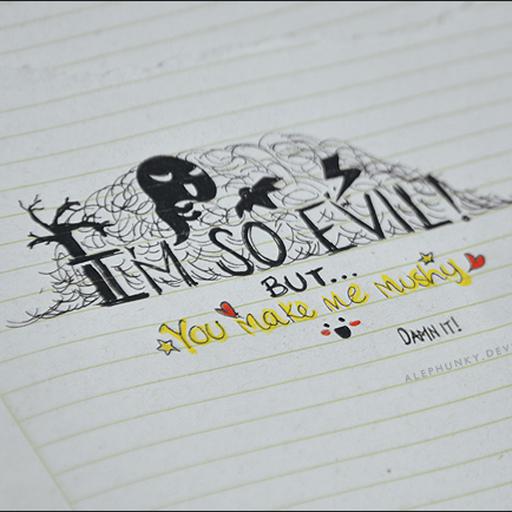 I'M SO EVIL!
BUT...
You make me mushy
DAMN IT!
ALEPHUNKY.DEV